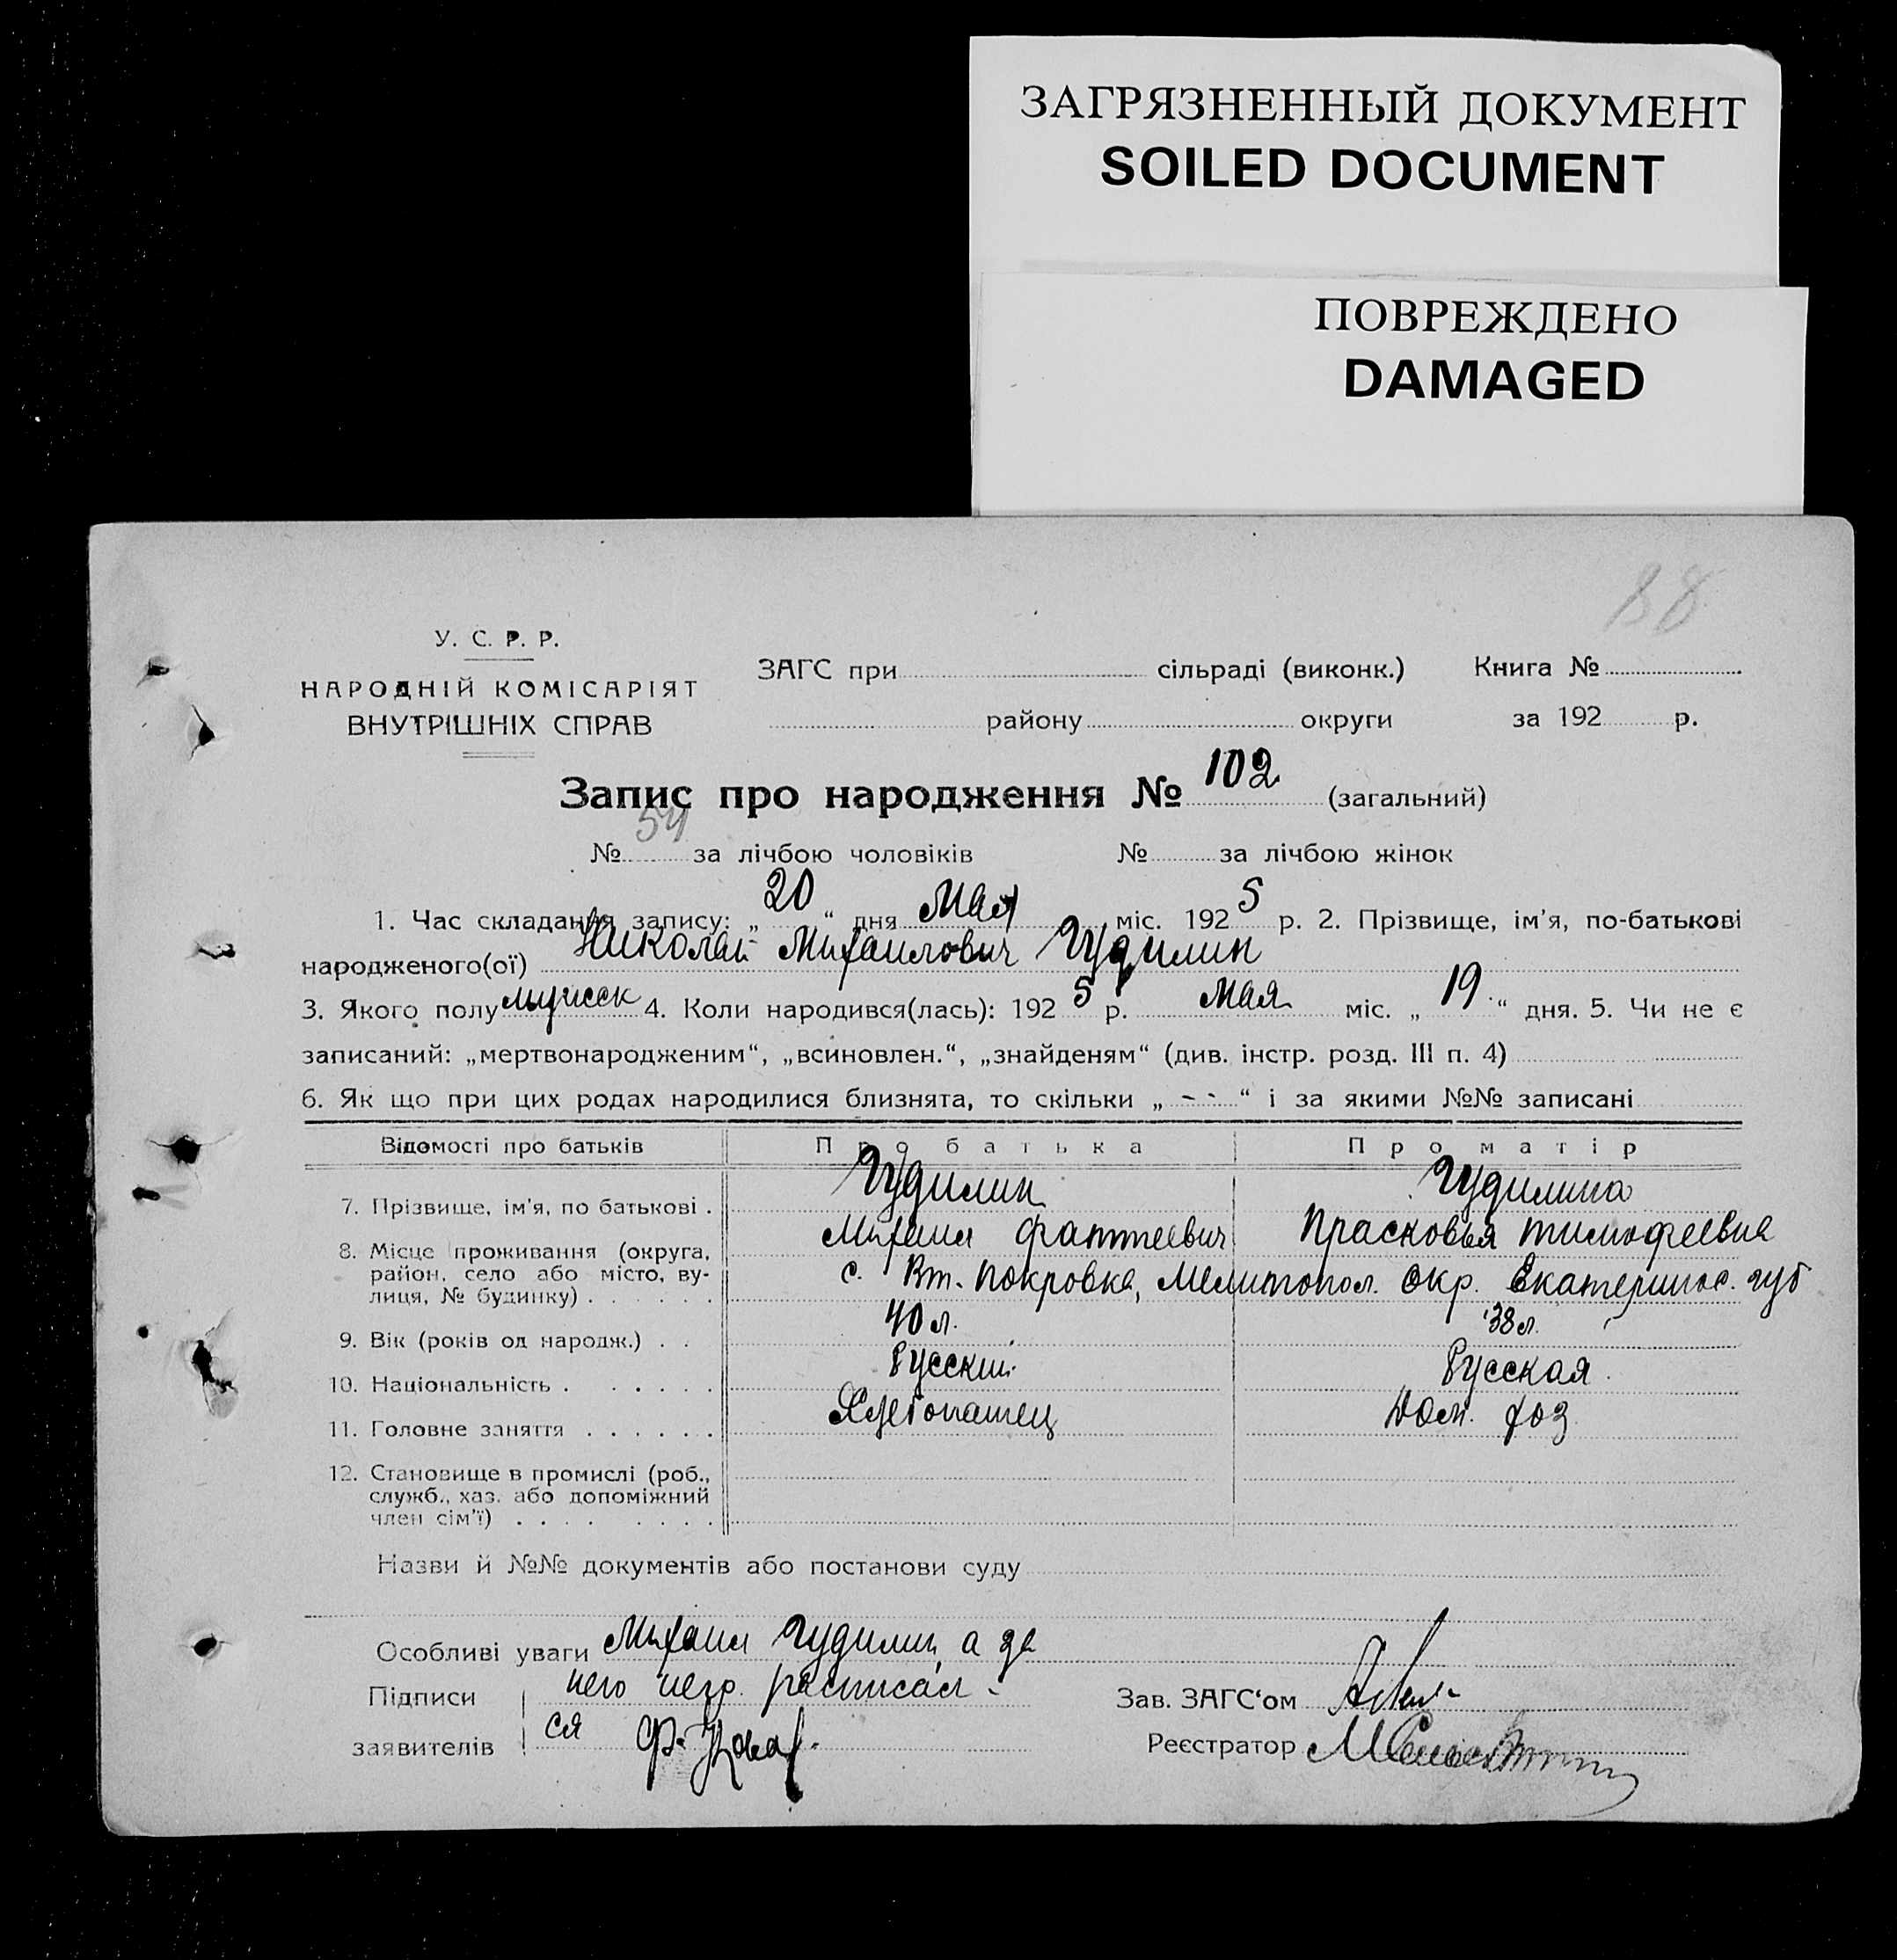 ЗАГРЯЗНЕННЫЙ ДОКУМЕНТ
SOILED DOCUMENT
ПОВРЕЖДЕНО
DAMAGED
88
У. С. Р. Р.
НАРОДНІЙ КОМІСАРІЯТ
ВНУТРІШНІХ СПРАВ
ЗАГС при сільраді (виконк.) Книга №
району округи за 192 р.
Запис про народження № 102 (загальний)
№ 54 за лічбою чоловіків № за лічбою жінок
1. Час складання запису: „ 20 “ дня Мая міс. 192 5 р. 2. Прізвище, ім'я, по-батькові
народженого(ої) Николай Михаилович Чудилин
3. Якого полу мужеск 4. Коли народився(лась): 192 5 р. Мая міс. „ 19 “ дня. 5. Чи не є
записаний: „мертвонародженим“, „всиновлен.“, „знайденям“ (див. інстр. розд. III п. 4)
6. Як що при цих родах народилися близнята, то скільки „ - - “ і за якими №№ записані
Відомості про батьків Про батька Про матір
7. Прізвище, ім'я, по батькові . Чудилин Чудилина
Михаил Фаттеевич Прасковья Тимофеевна
8. Місце проживання (округа, район, село або місто, ву- лиця, № будинку) . . . . . . с. Вт. Покровка, Мелитопол. окр. Екатеринос. губ
9. Вік (років од народж.) . . 40 л. 38 л.
10. Національність . . . . . . Русский Русская
11. Головне заняття . . . . . . Хлебопашец Дом. хоз
12. Становище в промислі (роб.,
служб., хаз. або допоміжний
член сім'ї) . . . . . . . .
Назви й №№ документів або постанови суду
Особливі уваги Михаил Чудилин, а за
Підписи него негр. расписал-
заявителів ся Ф.
Зав. ЗАГС'ом
Реєстратор